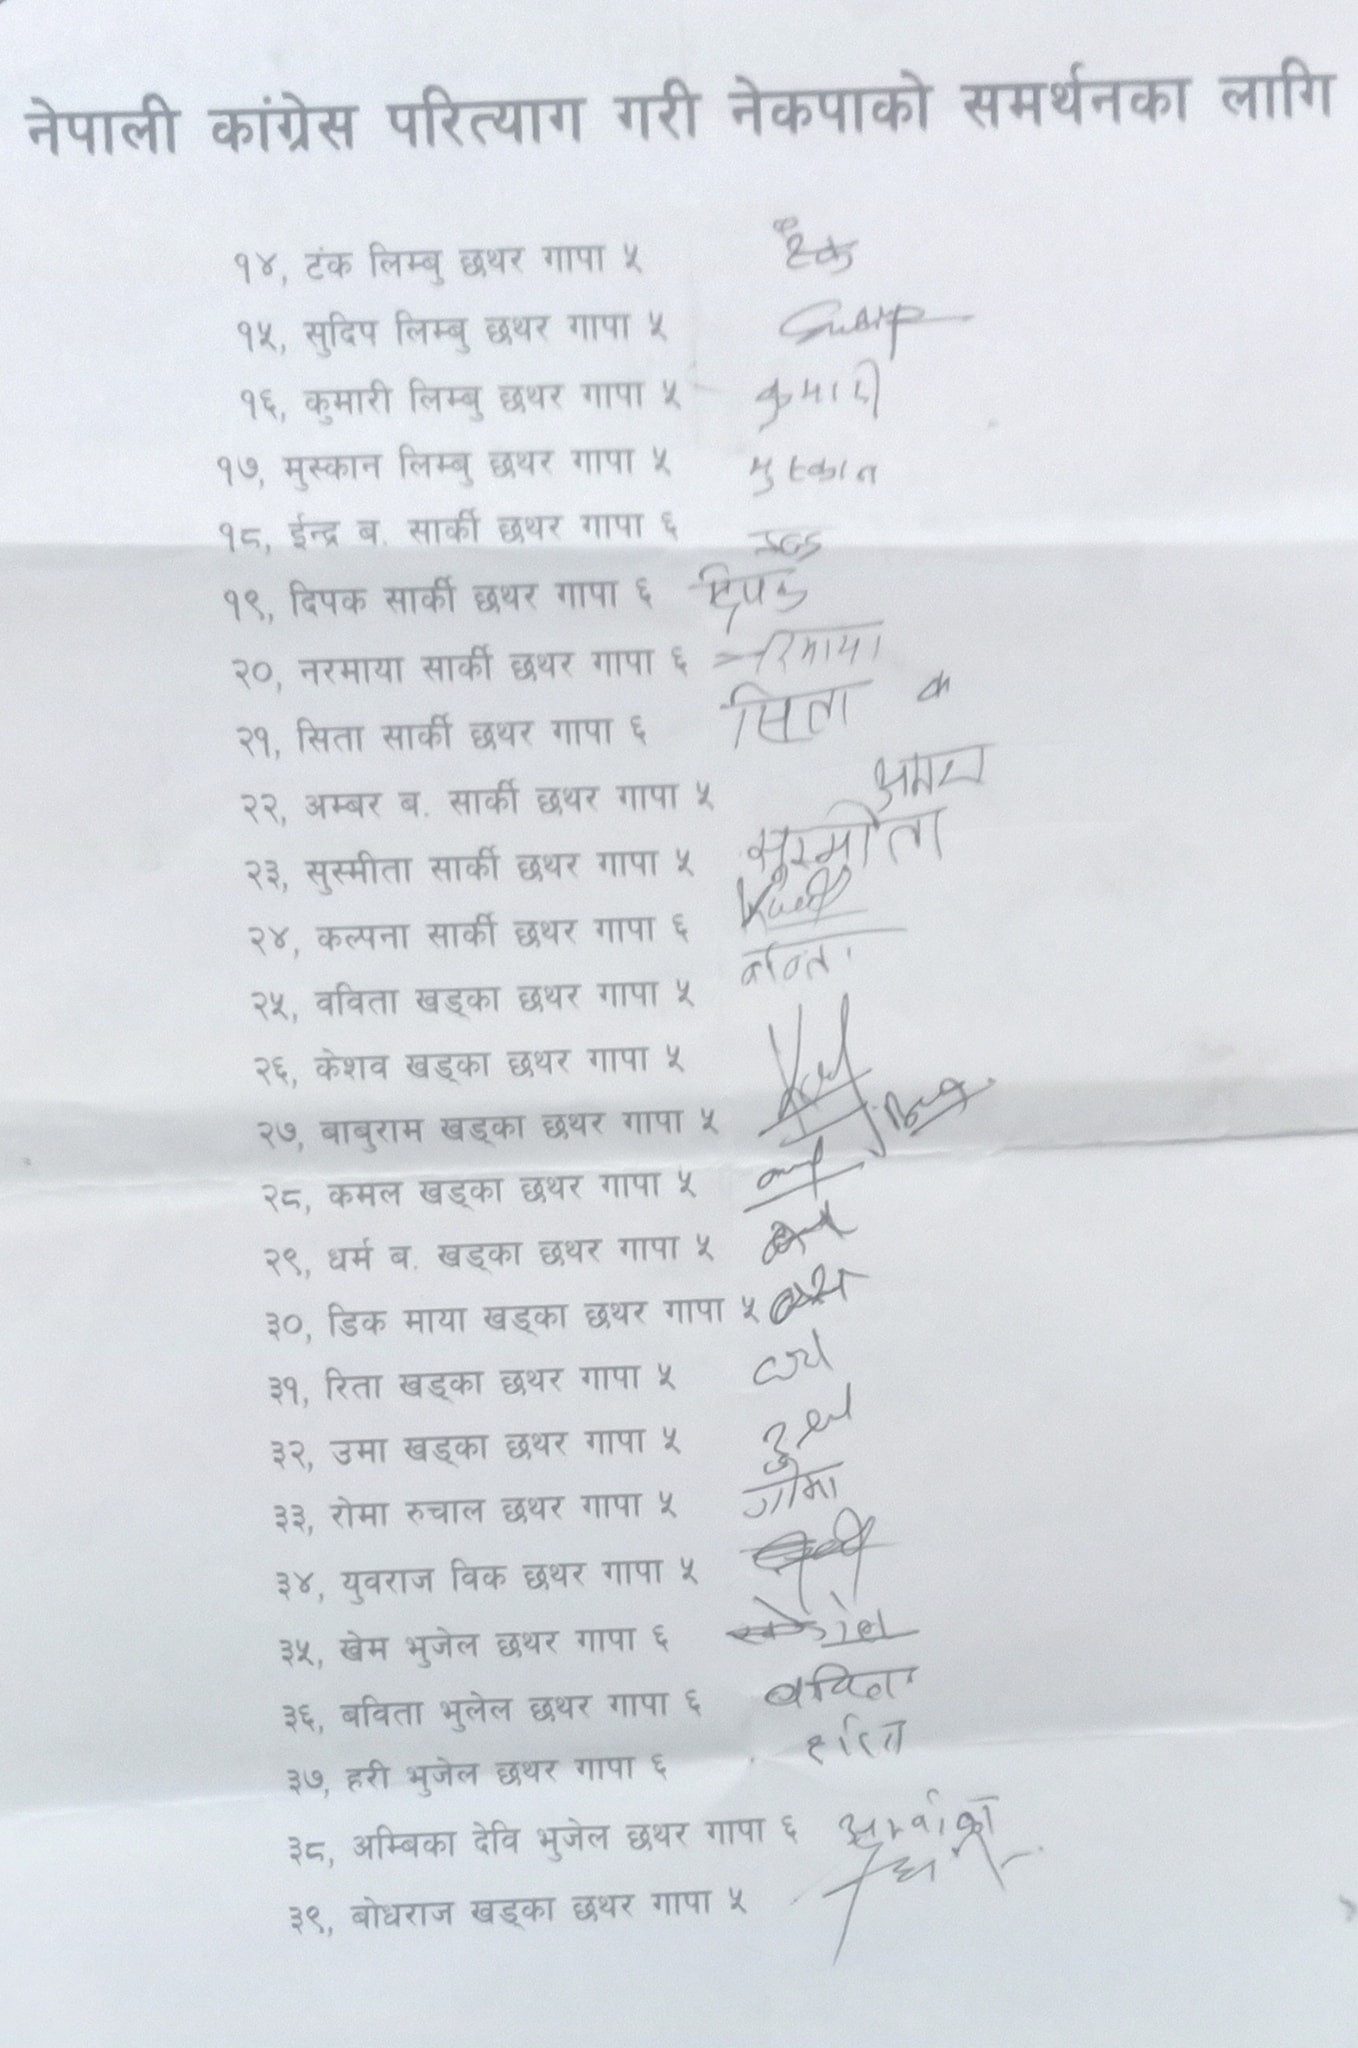 नेपाली कांग्रेस परित्याग गरी नेकपाको समर्थनका लागि
१४, टंक लिम्बु छथर गापा ५ टंक
१५, सुदिप लिम्बु छथर गापा ५
१६, कुमारी लिम्बु छथर गापा ५ कुमारी
१७, मुस्कान लिम्बु छथर गापा ५ मुस्कान
१८, ईन्द्र ब. सार्की छथर गापा ६
१९, दिपक सार्की छथर गापा ६ दिपक
२०, नरमाया सार्की छथर गापा ६
२१, सिता सार्की छथर गापा ६ सिता
२२, अम्बर ब. सार्की छथर गापा ५
२३, सुस्मीता सार्की छथर गापा ५ सुस्मीता
२४, कल्पना सार्की छथर गापा ६
२५, वविता खड्का छथर गापा ५
२६, केशव खड्का छथर गापा ५
२७, बाबुराम खड्का छथर गापा ५
२८, कमल खड्का छथर गापा ५
२९, धर्म ब. खड्का छथर गापा ५
३०, डिक माया खड्का छथर गापा ५
३१, रिता खड्का छथर गापा ५
३२, उमा खड्का छथर गापा ५
३३, रोमा रुचाल छथर गापा ५
३४, युवराज विक छथर गापा ५
३५, खेम भुजेल छथर गापा ६
३६, बविता भुलेल छथर गापा ६ बविता
३७, हरी भुजेल छथर गापा ६
३८, अम्बिका देवि भुजेल छथर गापा ६
३९, बोधराज खड्का छथर गापा ५